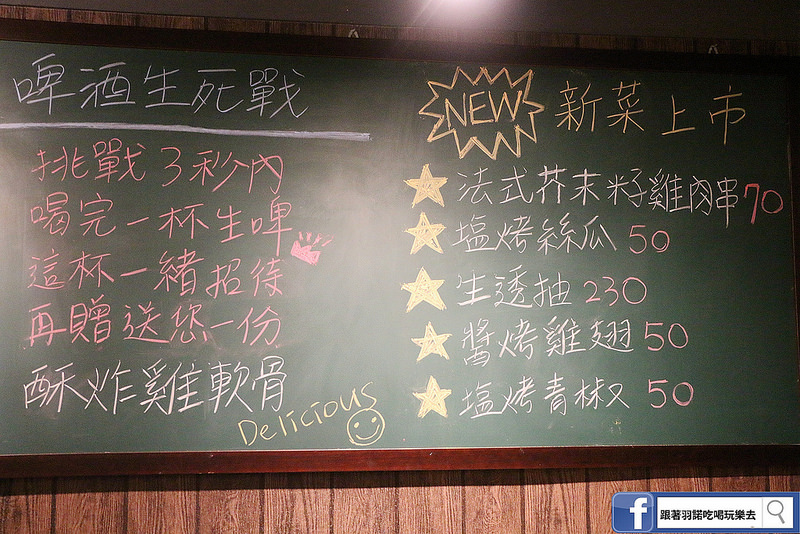 啤酒生死戰
挑戰3秒內
喝完一杯生啤
這杯一緒招待
再贈送您一份
酥炸雞軟骨
Delicious
NEW 新菜上市
法式芥末籽雞肉串70
塩烤絲瓜 50
生透抽 230
醬烤雞翅 50
塩烤青椒 50
f 跟著羽諾吃喝玩樂去